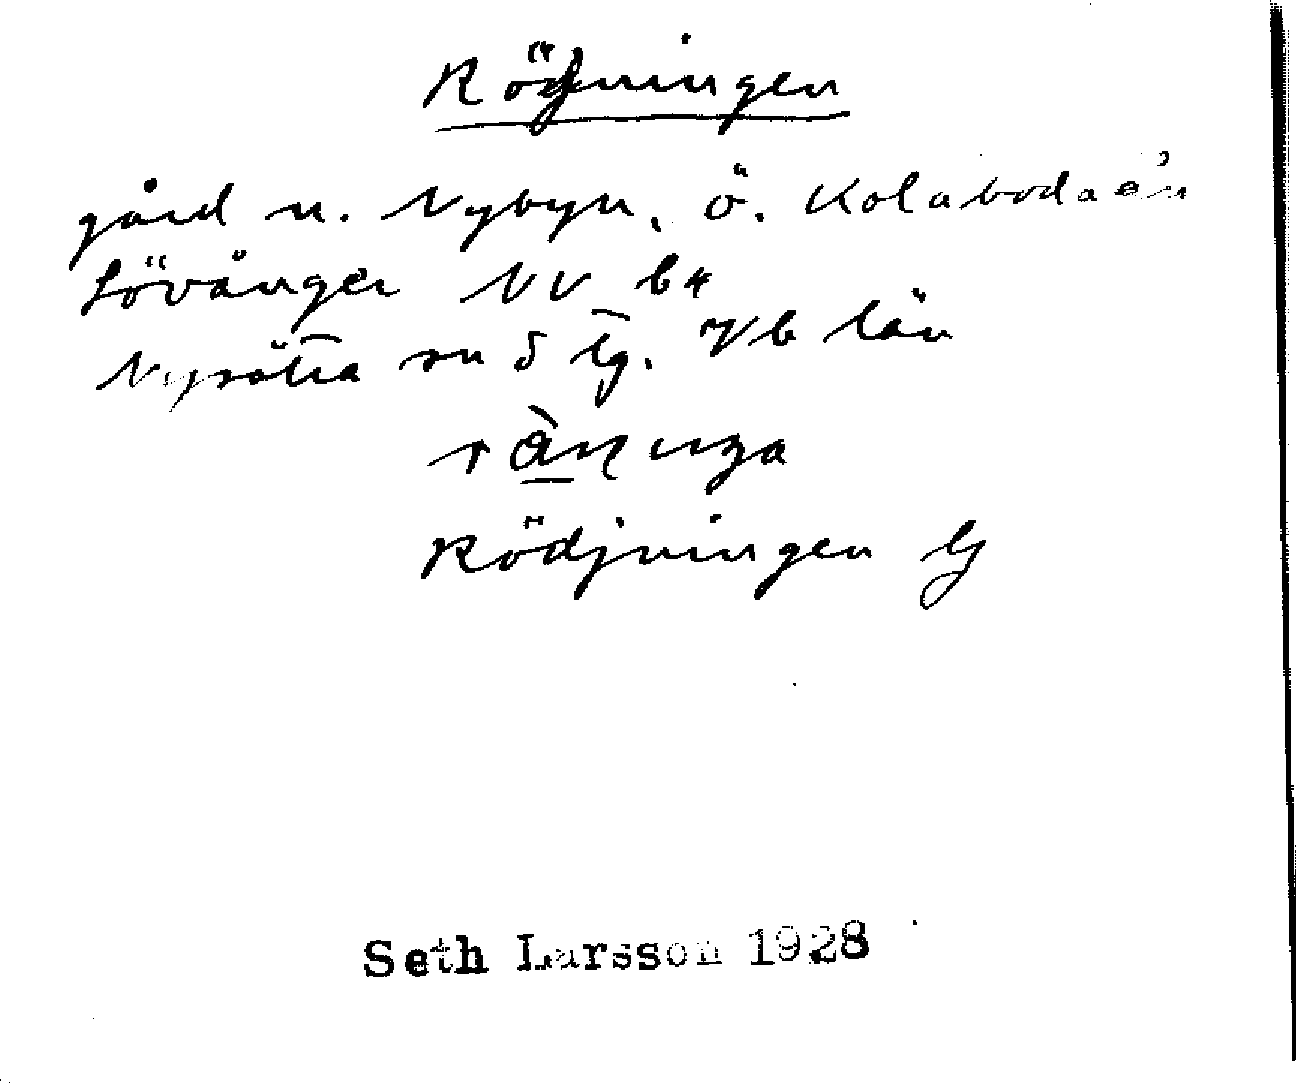 Rödjningen
gård n. Nybyn, ö. Kolabodaån
Lövånger NV b4
Nysätra sn S tg. Vb län
Rödjningen G
Seth Larsson 1928